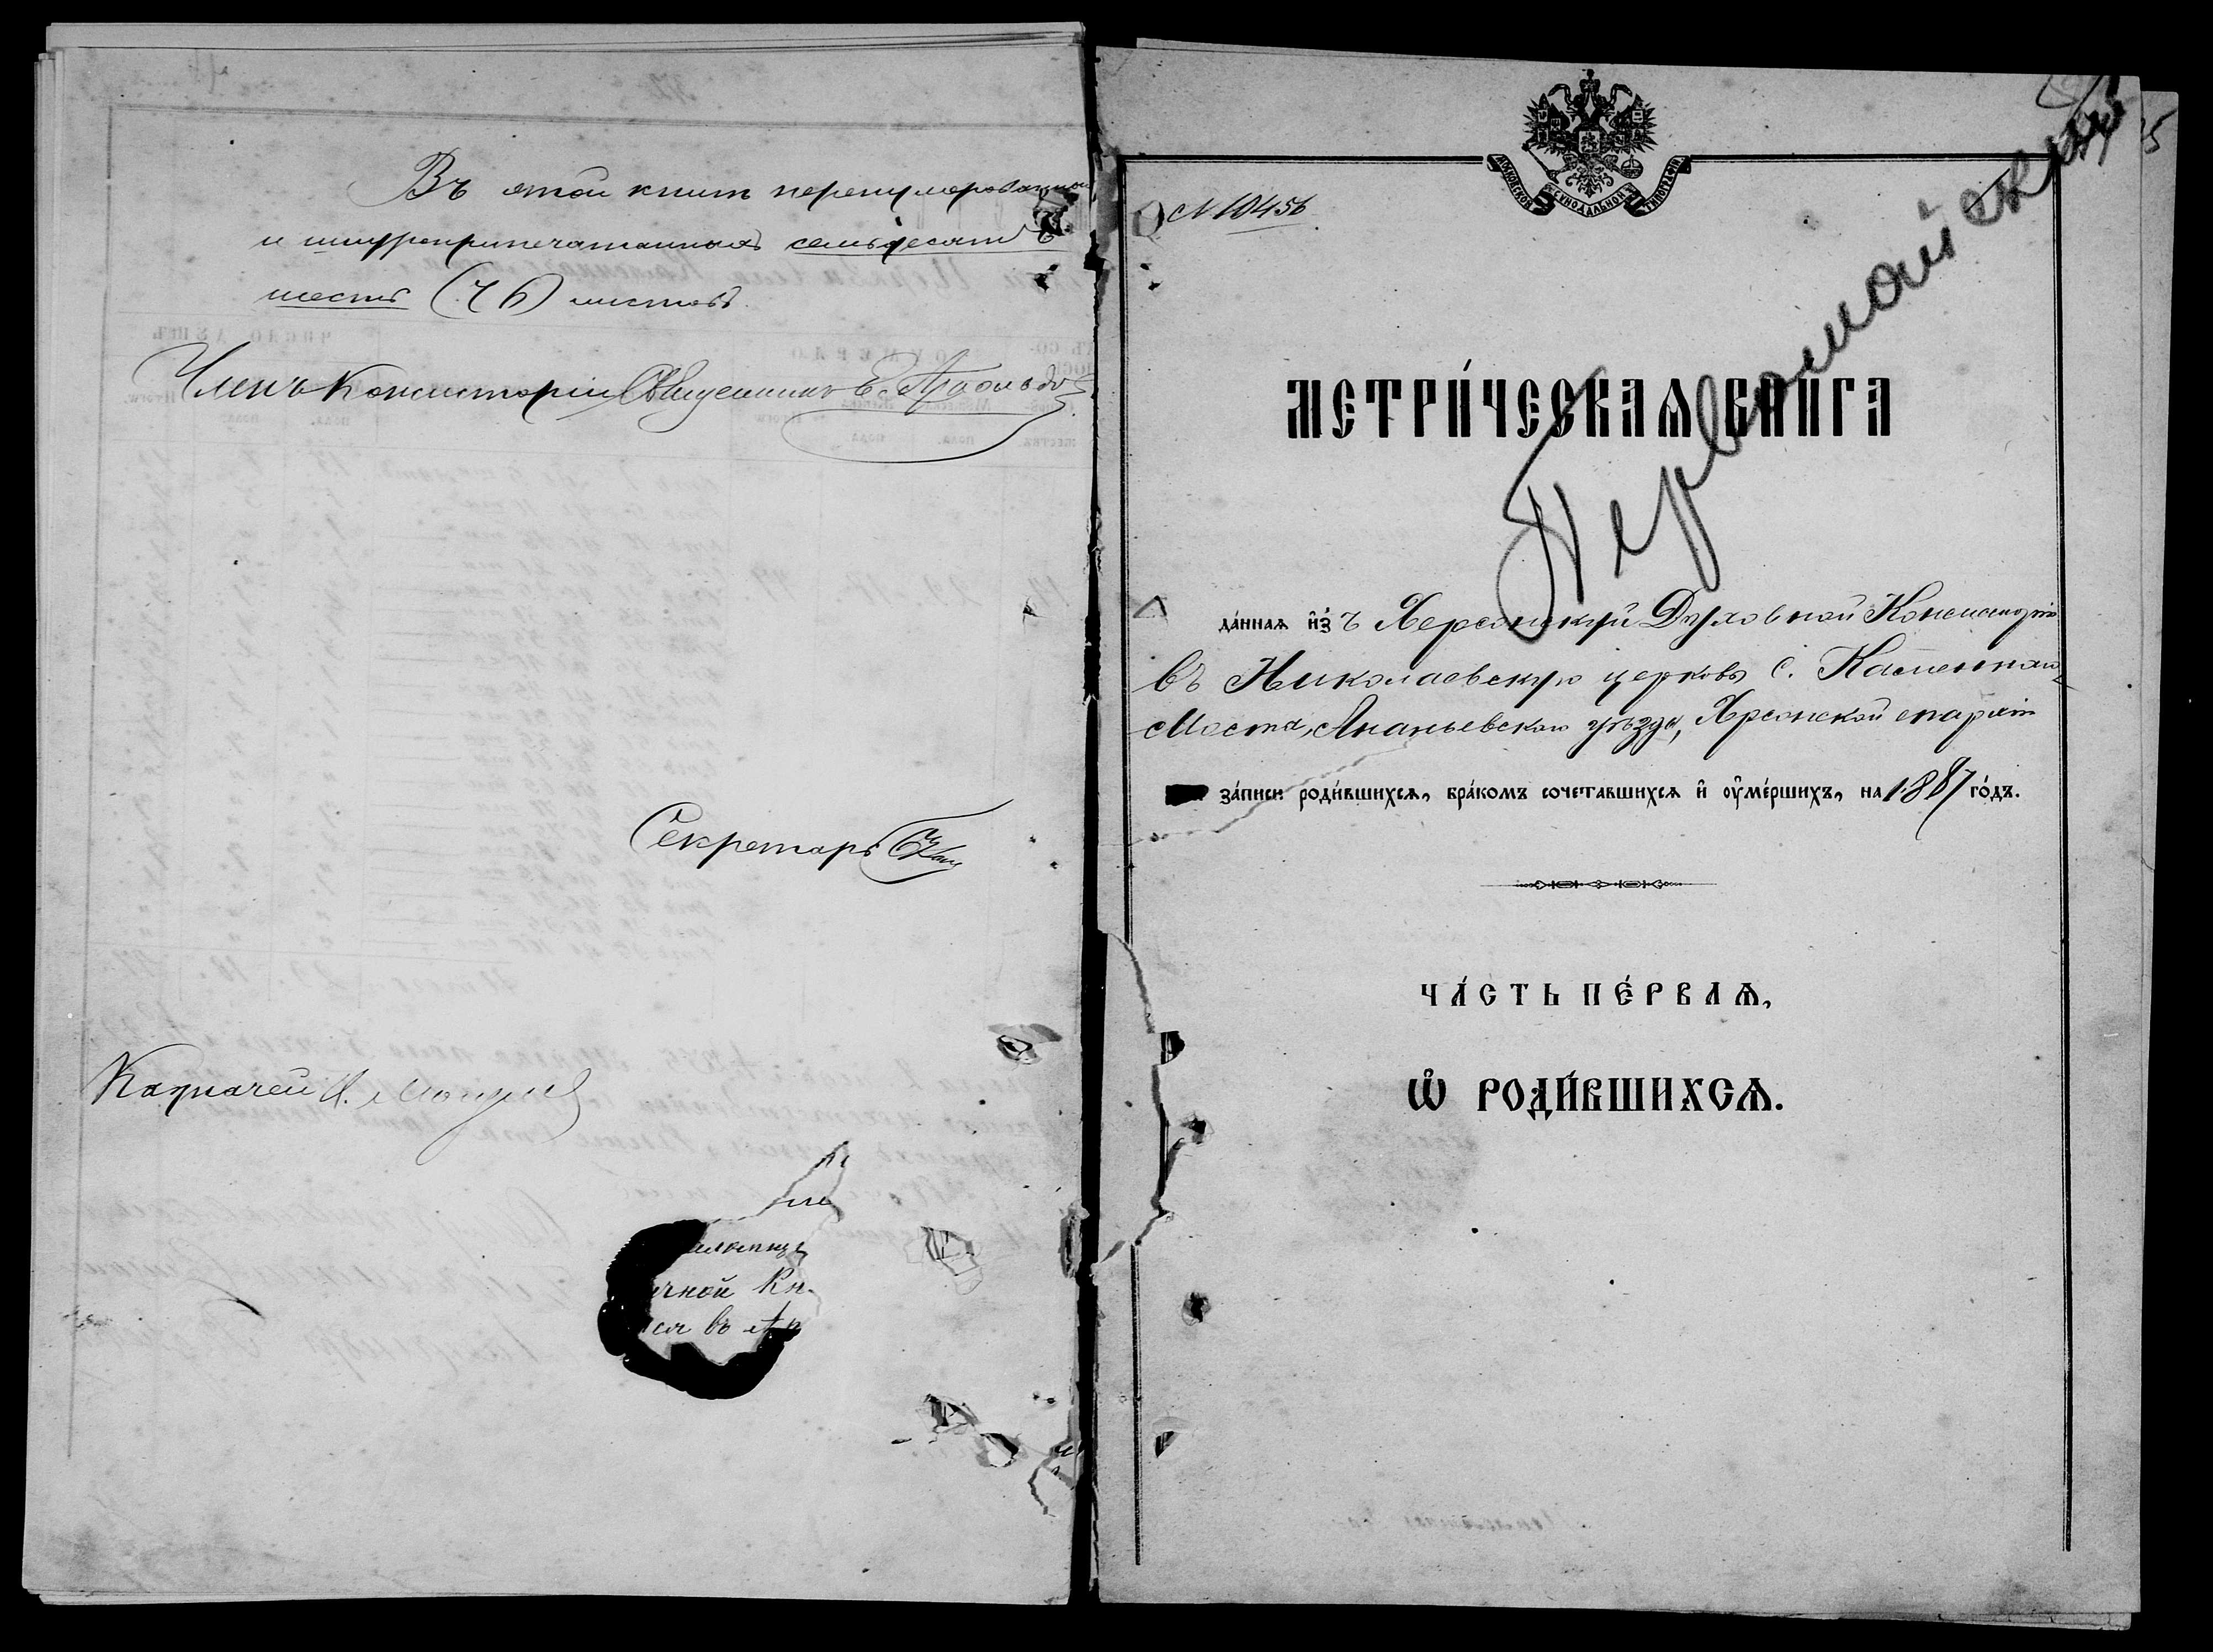 Въ этой книгѣ перенумерованныхъ
и шнуроприпечатанныхъ семьдесятъ
шесть (76) листовъ.
Членъ Консисторіи Священникъ Е.
Секретарь
Казначей
ичной Кн.
ся въ
МОСКОВСКОЙ СѴНОДАЛЬНОЙ ТИПОГРАФІИ
№ 10456
Первомайский
МЕТРИ́ЧЕСКАѦ КНИ́ГА
да́ннаѧ и҆́з ъ Херсонской Духовной Консисторіи
въ Николаевскую церковь с. Каменнаго
Моста, Ананьевскаго уѣзда, Херсонской епархіи
за́писи роди́вшихсѧ, бра́комъ сочета́вшихсѧ и҆ ᲂу҆ме́ршихъ, на 1887 го́дъ.
ЧА́СТЬ ПЕ́РВАѦ,
Ѽ РОДИ́ВШИХСѦ.